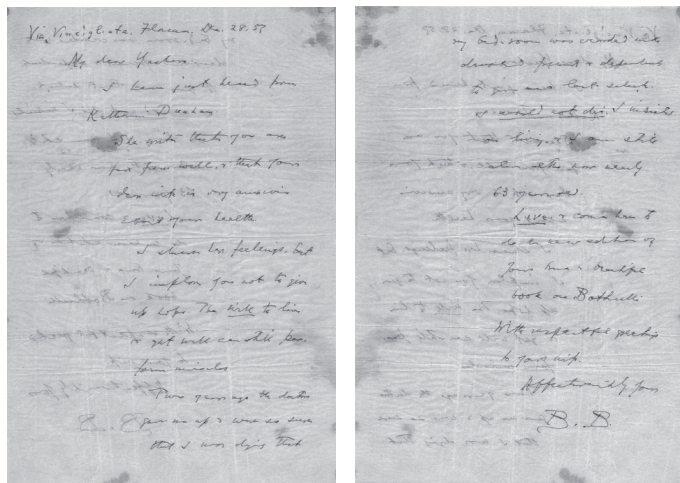 Via Vincigliata, Florence, Dec. 28. 57
My dear Yashiro
I have just heard from
Katherine Dunham
She writes that you are
far from well, & that your
dear wife is very anxious
about your health.
I share her feelings, but
I implore you not to give
up hope. The will to live
& get well can still per-
form miracles
Two years ago the doctors
gave me up & were so sure
that I was dying that
my bed-room was crowded with
devoted friends & dependents
to give me last salute.
I would not die. I insisted
on living & I am still
alive altho' now nearly
63 pounds
Live & come here to
do a new edition of
your true & beautiful
book on Botticelli
With respectful greetings
to your wife
Affectionately yours
B. B.